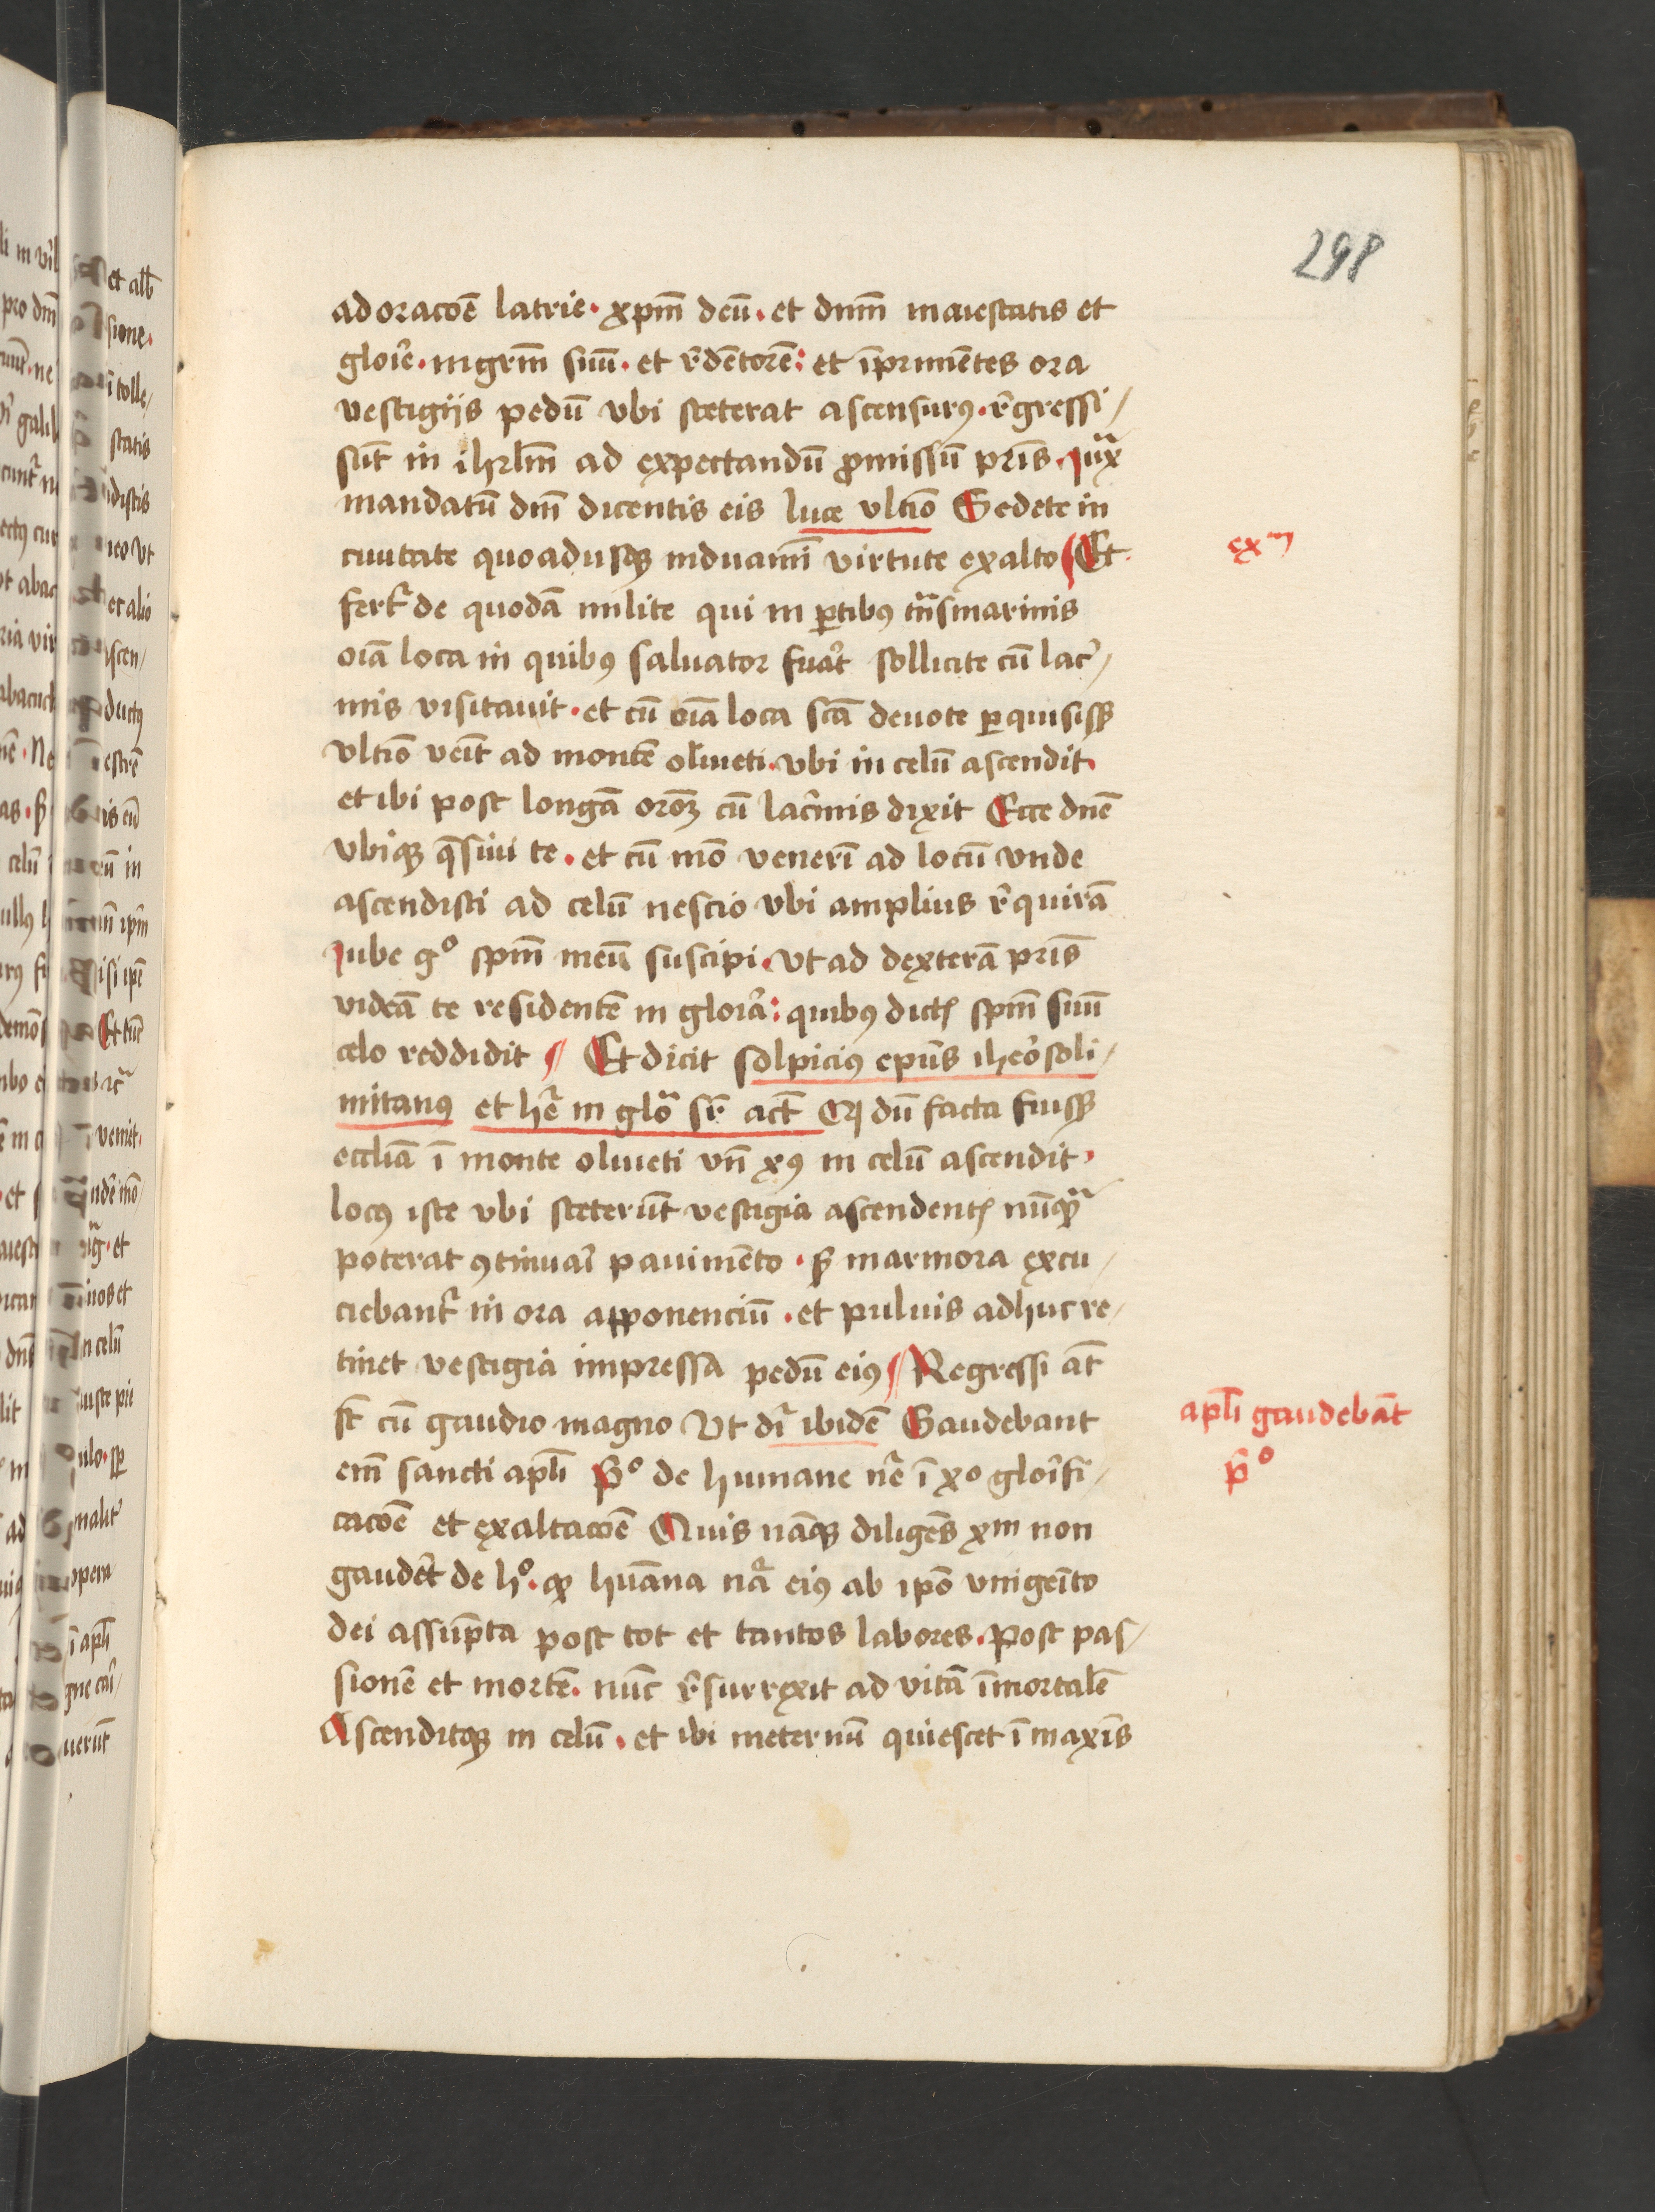 298
adoracōē latrie · xp̄m deū · et dn̄m maiestatis et
glorīe · mgr̄m suū · et r̄dētorē : et īprimētes ora
vestigijs pedū vbi steterat ascensurꝰ · r̄gressi /
sūt in ihrl̄m ad expectandū ꝓmissū pr̄is · Iux̄
mandatū dn̄i dicentis eis luce vltīo Sedete in
ciuitate quoadusqꝫ induamī virtute ex alto ¶ Et
exm
fert᷑ de quodā milite qui in ꝑtibꝰ tn̄smarinis
oīa loca in quibꝰ saluator fuāt sollicite cū lac̄ /
mis visitauit · et cū oīa loca sc̄a deuote ꝑquisissꝫ
vltīo veīt ad montē oliueti · vbi in celū ascendit ·
et ibi post longā orōꝫ cū lac̄mis dixit Ecce dn̄e
vbiqꝫ q̄siui te · et cū mō venerī ad locū vnde
ascendisti ad celū nescio vbi amplius r̄quirā
Iube gº sp̄m meū suscipi · vt ad dexterā pr̄is
videā te residentē in glorīa : quibꝰ dictꝭ sp̄m suū
celo reddidit ¶ Et dicit solpiciꝰ ep̄us iheōsoli /
mitanꝰ et hr̄ in glō sr̄ act̄ Cꝗ dū facta fuissꝫ
eccl̄ia ī monte oliueti vn̄ xꝰ in celū ascendit ·
locꝰ iste vbi steterūt vestigia ascendentꝭ nūqꝫ̄
poterat ꝯtinuar̄ pauimēto · sꝫ marmora excu /
ciebant᷑ in ora apponenciū · et puluis adhuc re /
tinet vestigia impressa pedū eiꝰ ¶ Regressi at̄
sūt cū gaudio magno Vt dr̄ ibidē Gaudebant
apl̄i gaudebāt
pº
em̄ sancti apl̄i Pº de humane nr̄e ī xº glorīfi /
cacōē et exaltacōē Quis nāqꝫ diligēs xm non
gaudēt de hº · ꝙ hūana nr̄a eiꝰ ab ip̄o vnigeīto
dei assūpta post tot et tantos labores · post pas /
sionē et mortē · nūc r̄surrexit ad vitā īmortalē
Ascenditqꝫ in celū · et ibi ineternū quiescet ī maxīs